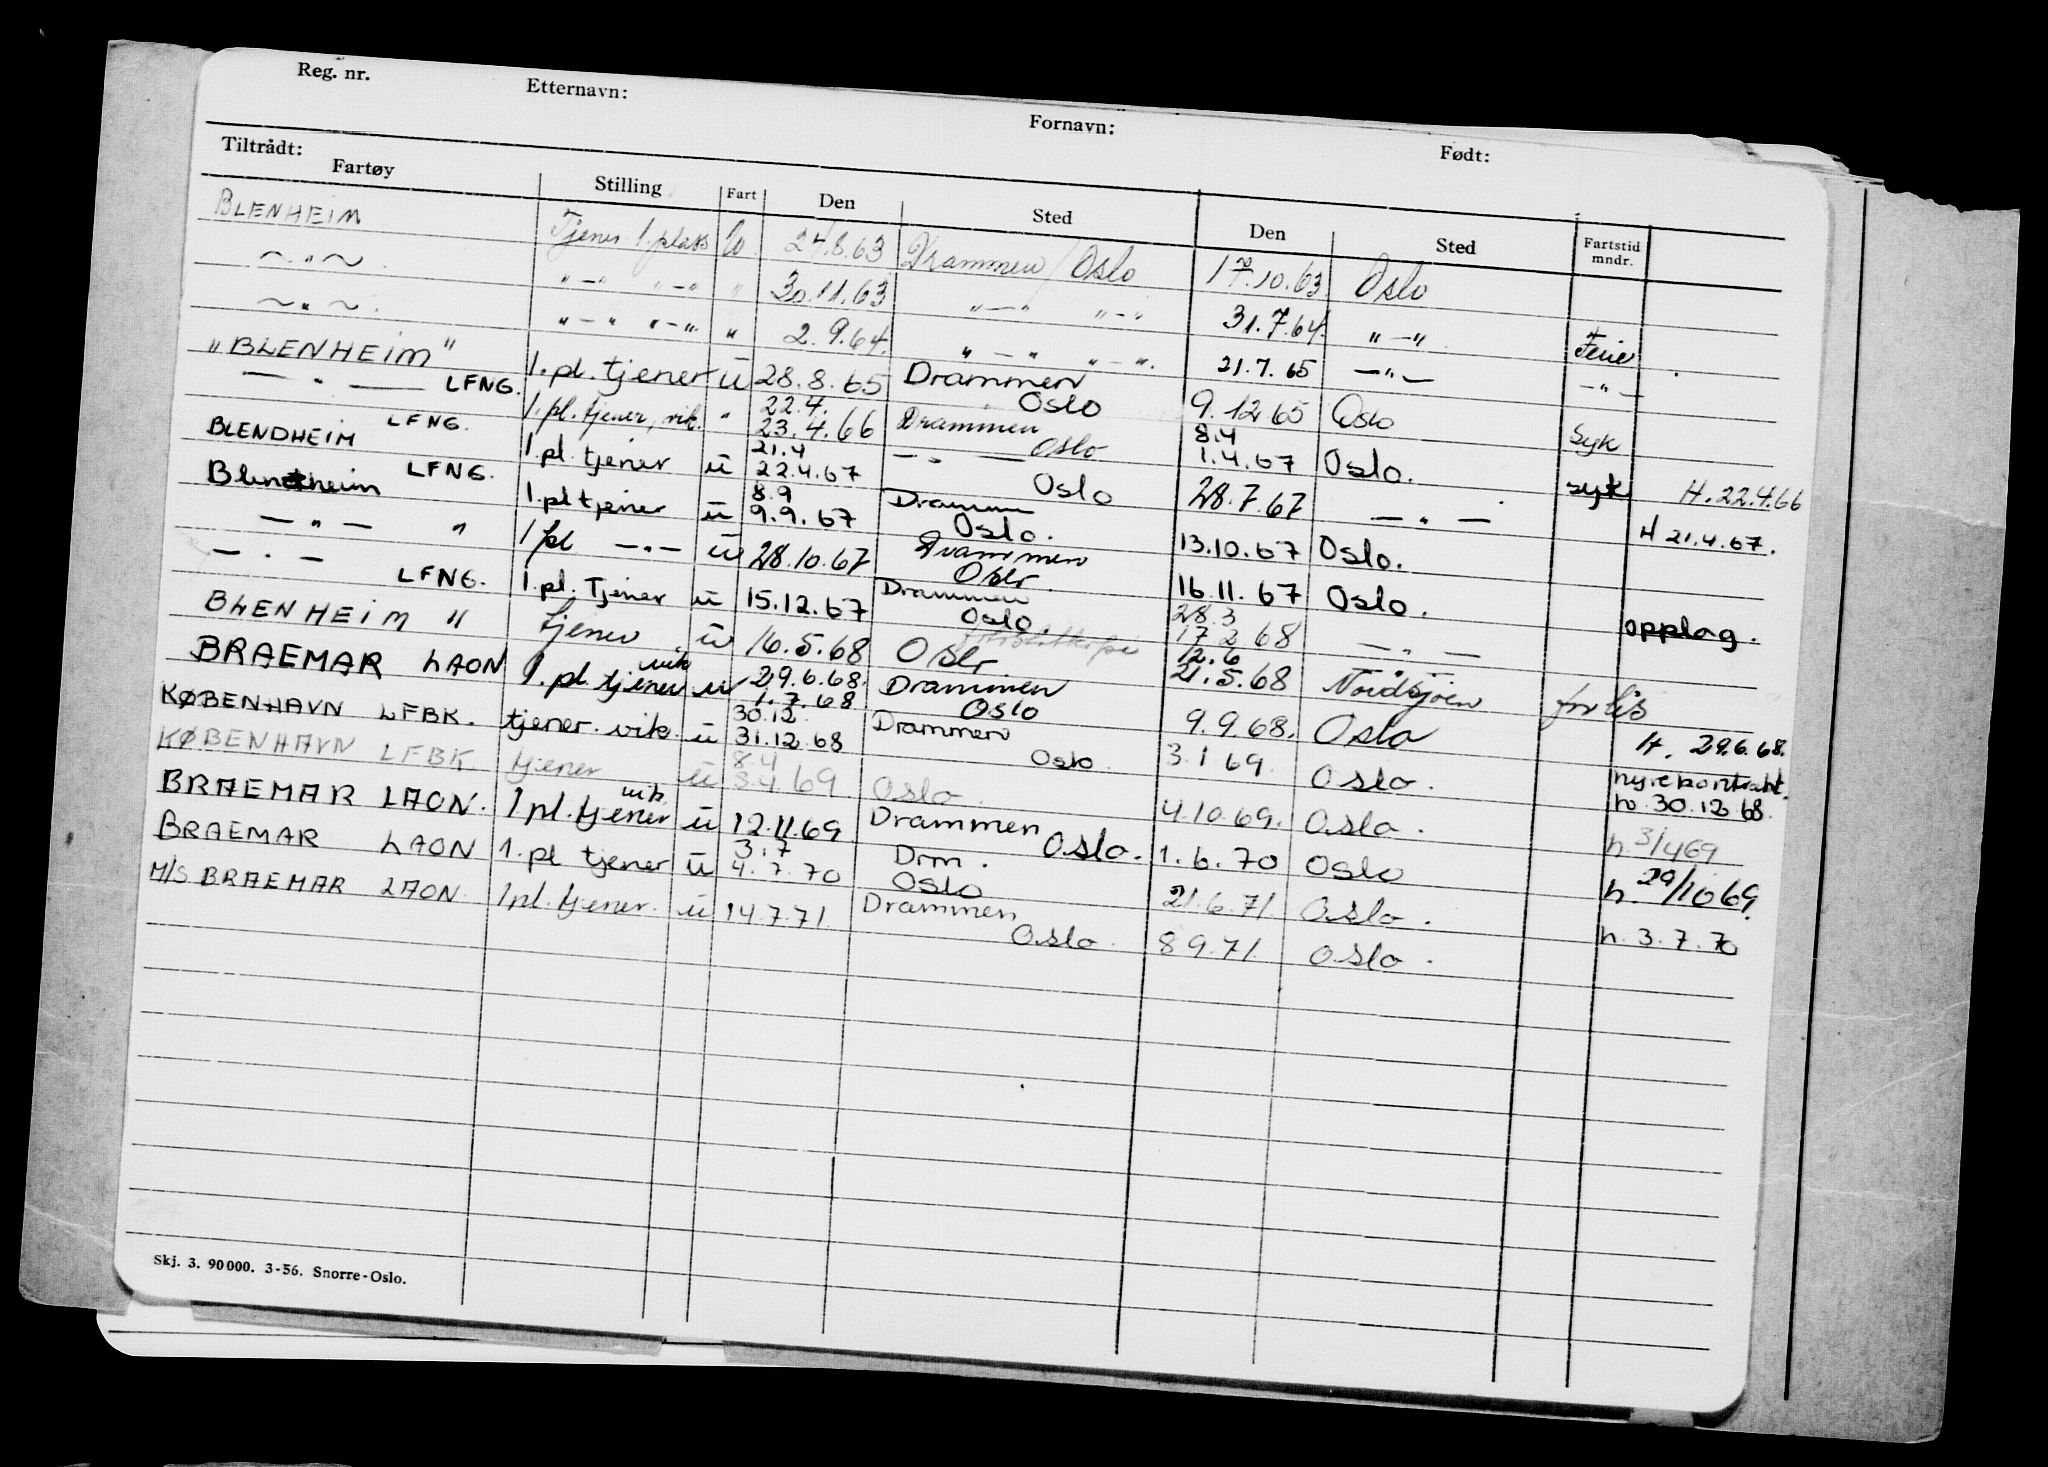 Reg. nr. Etternavn: Fornavn: Født:
Tiltrådt:
Fartøy Stilling Fart Den Sted Den Sted Fartstid mndr.
BLENHEIM Tjener 1. plass U 24.8.63 Drammen/Oslo 17.10.63 Oslo
～ " ～ " — " " — " " 30.11.63 " — " " — " 31.7.64. " — " Ferie
～ " ～ " — " " — " " 2.9.64. " — " " — " 21.7.65 — " — — " —
"BLENHEIM" LFNG. 1. pl. tjener u 28.8.65 Drammen Oslo 9.12 65 Oslo Syk
— " — LFNG. 1. pl. tjener, vik. " 22.4. 23.4.66 Drammen Oslo 8.4 1.4.67 Oslo. syk H. 22.4.66
BLENDHEIM LFNG. 1. pl. tjener u 21.4 22.4.67 — " — Oslo 28.7.67 — " — H 21.4.67.
Blendheim " 1. pl tjener u 8.9 9.9.67 Drammen Oslo. 13.10.67 Oslo.
— " — 1 pl — " — u 28.10.67 Drammen Oslo 16.11.67 Oslo. opplag.
— " — LFNG. 1. pl. Tjener u 15.12.67 Drammen Oslo. 28.3 17.2 68 — " —
BLENHEIM " tjener u 16.5.68 Oslo 12.6 21.5.68 Nordsjøen forlis
BRAEMAR LAON 1. pl. tjener vik u 29.6.68. 1.7.68 Drammen Oslo 9.9.68. Oslo H. 29.6.68.
KØBENHAVN LFBK. tjener. vik. u 30.12. 31.12.68 Drammen Oslo 3.1 69. Oslo. nyrekontrakt. h. 30.12 68.
KØBENHAVN LFBK tjener u 8.4 8.4.69 Oslo. 4.10.69. Oslo. h. 3/4 69
BRAEMAR LAON. 1 pl. tjener vik. u 12.11.69. Drammen Oslo. 1.6.70 Oslo h. 29/10 69.
BRAEMAR LAON 1. pl tjener u 3.7 4.7.70 Drm. Oslo 21.6.71. Oslo. h. 3.7.70
M/S BRAEMAR LAON. 1pl. tjener. u 14.7.71. Drammen Oslo. 8 9.71. Oslo.
Skj. 3. 90000. 3-56. Snorre-Oslo.